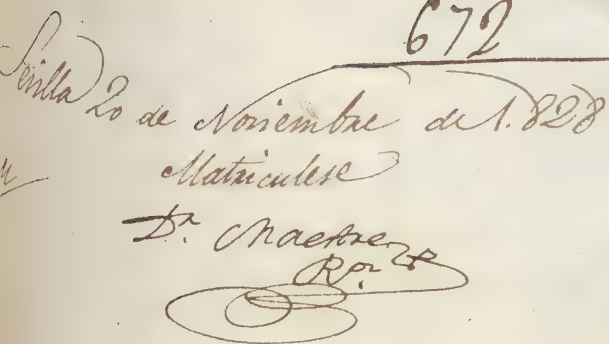 672
Sevilla 20 de Noviembre de 1.828
Matriculese
Dr. Maestre
Ror